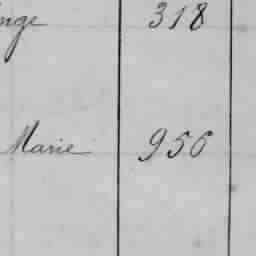 nge 318
Marie 956